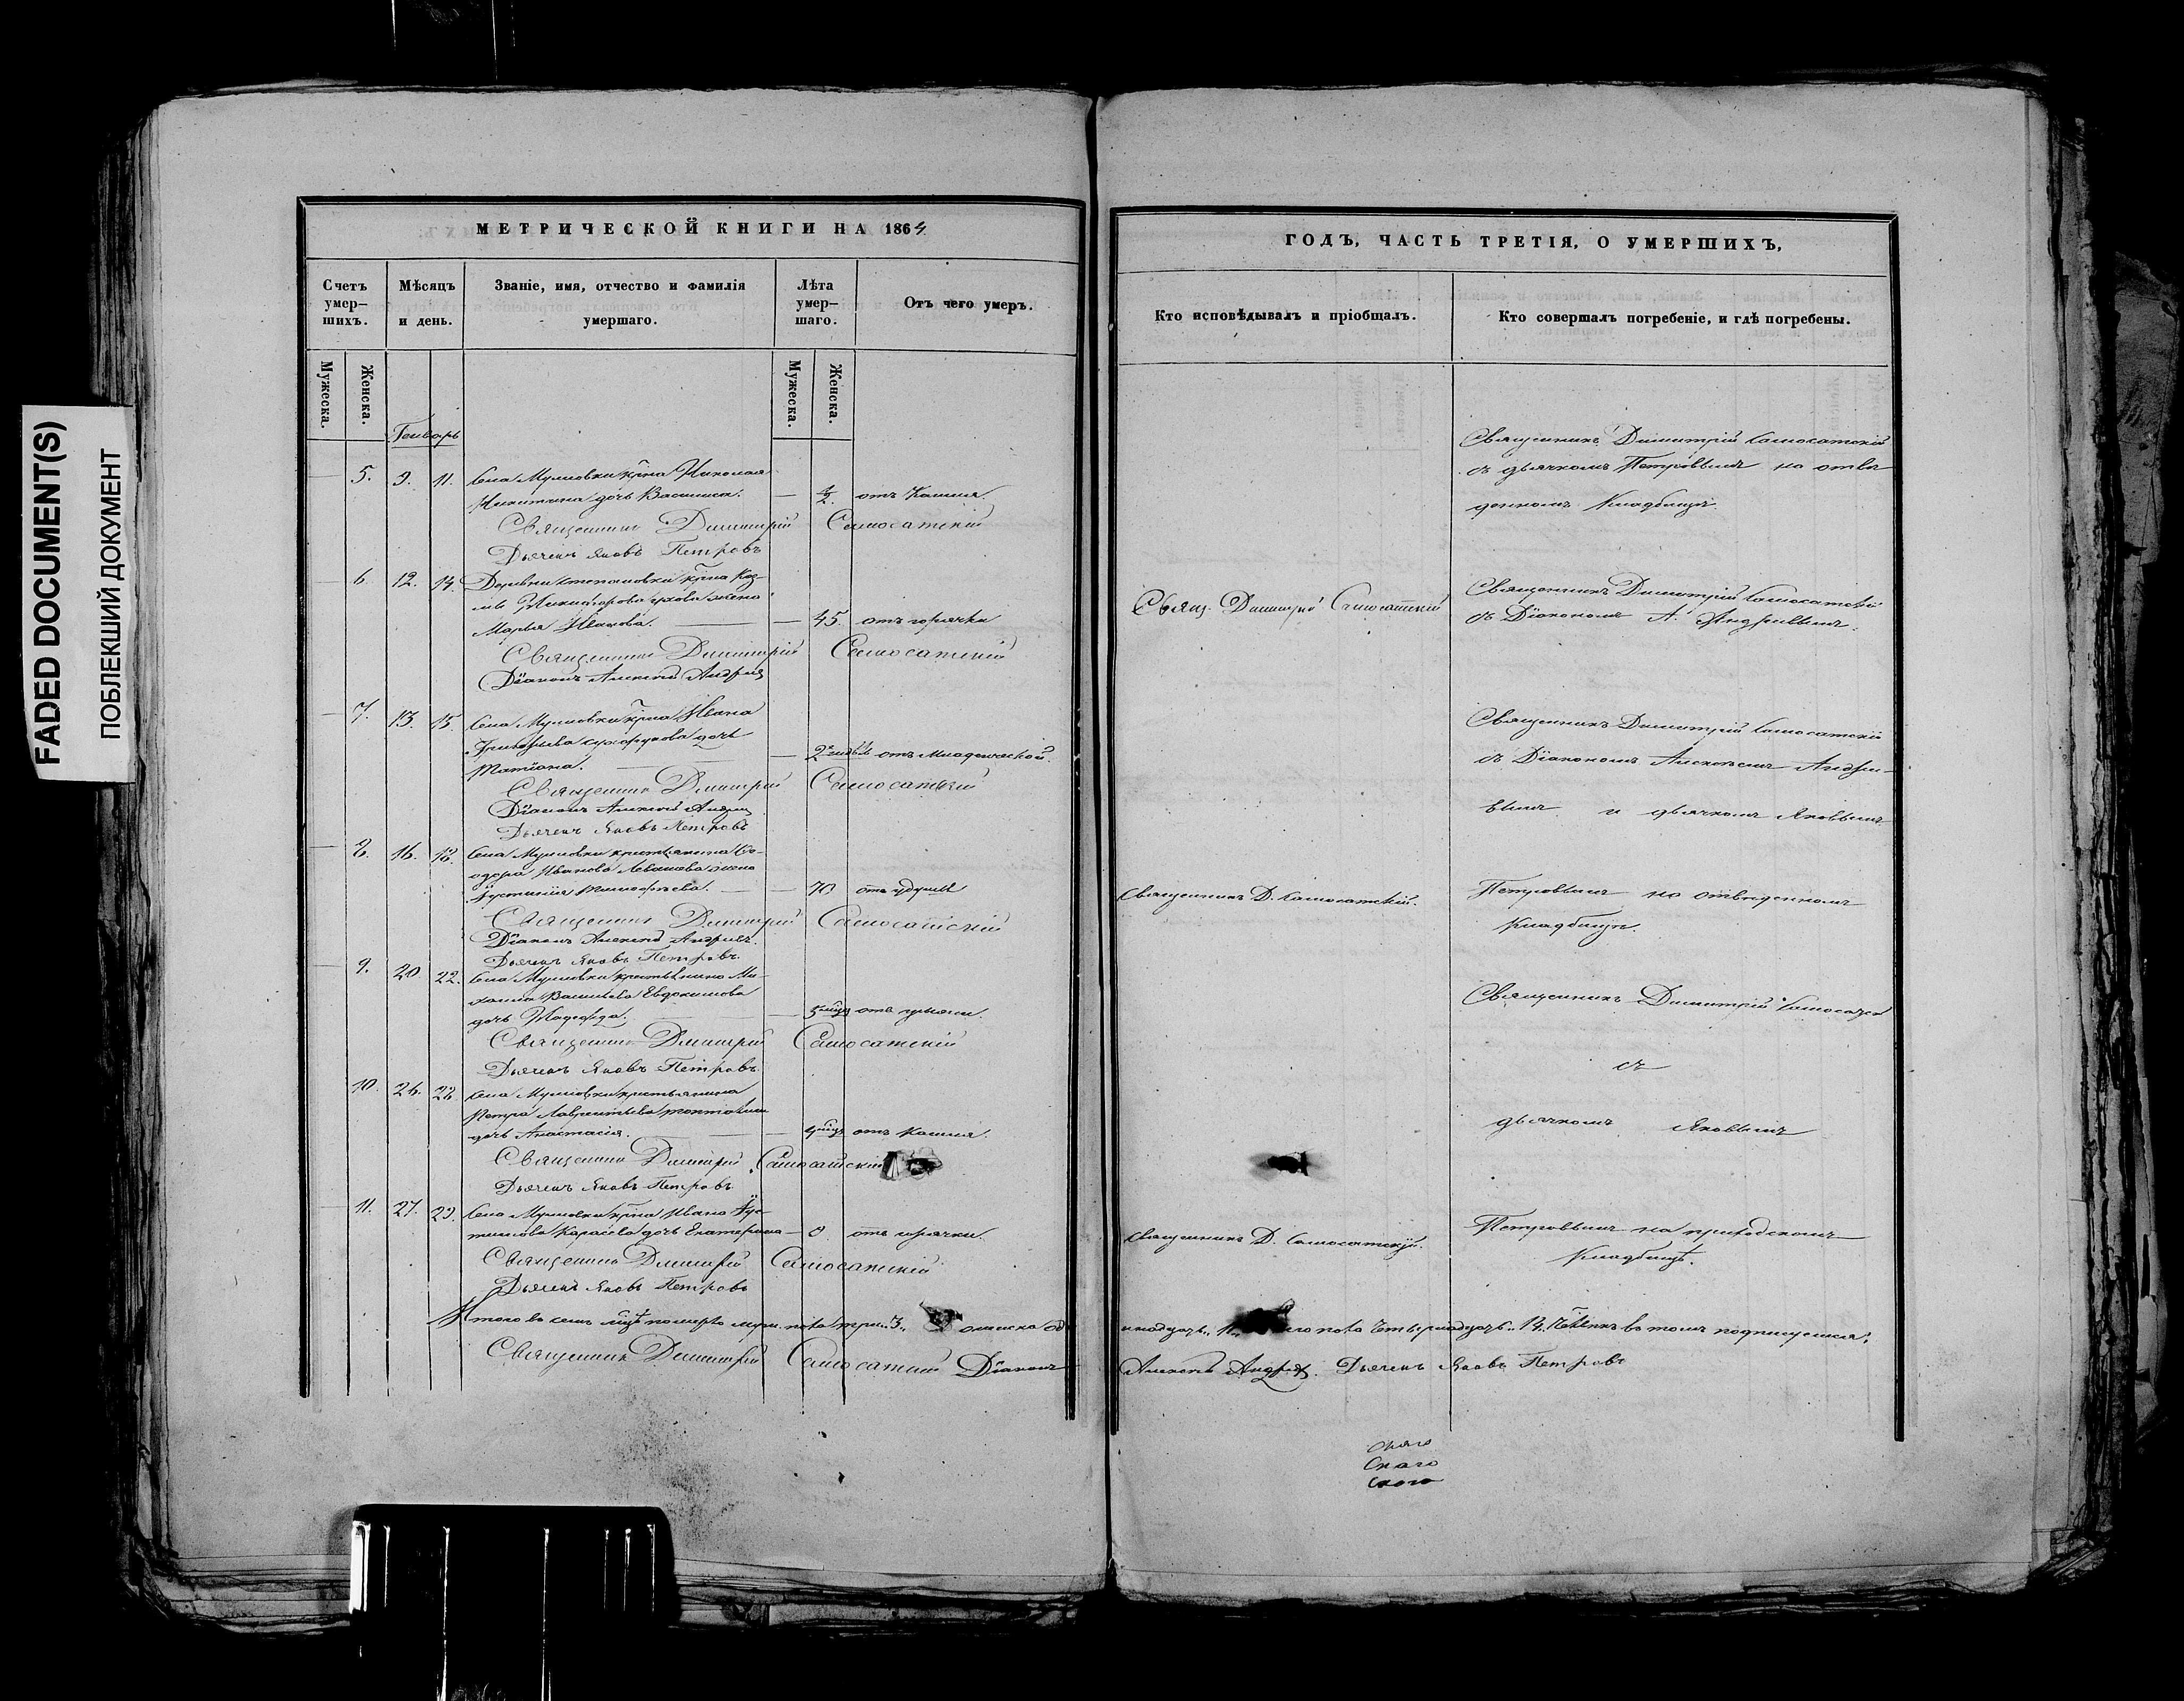 FADED DOCUMENT(S)
ПОБЛЕКШИЙ ДОКУМЕНТ
МЕТРИЧЕСКОЙ КНИГИ НА 1864
Счетъ умер-шихъ.
Мѣсяцъ и день.
Званіе, имя, отчество и фамилія умершаго.
Лѣта умер-шаго.
Отъ чего умеръ.
Мужеска.
Женска.
Мужеска.
Женска.
Генварь
5. 9. 11. Села Мулловки кр͞на Николая
Никитина дочь Василиса. — ½ отъ кашля.
Священникъ Димитрій Самосатскій
Дьячекъ Яковъ Петровъ
6. 12. 14. Деревни Степановки кр͞на Коз-
мы Никифорова жена
Марья Иванова. — 45. отъ горячки
Священникъ Димитрій Самосатскій
Діаконъ Алексѣй Андреевъ
7. 13. 15. Села Мулловки кр͞на Ивана
Григорьева Сухорукова дочь
Татіана. — 2 недѣль отъ младенческой.
Священникъ Димитрій Самосатскій
Діаконъ Алексѣй Андреевъ
Дьячекъ Яковъ Петровъ
8. 16. 18. Села Мулловки крестьянина Ѳе-
одора Иванова Левашова жена
Устинія Тимофеева. — 70 отъ удушья
Священникъ Димитрій Самосатскій
Діаконъ Алексѣй Андреевъ.
Дьячекъ Яковъ Петровъ.
9. 20 22. Села Мулловки крестьянина Ми-
хаила Васильева Евдокимова
дочь Надежда. — 5 мѣц отъ
Священникъ Димитрій Самосатскій
Дьячекъ Яковъ Петровъ.
10. 26. 28 Села Мулловки крестьянина
Петра Лаврентьева
дочь Анастасія. — мѣц отъ кашля.
Священникъ Димитрій Самосатскій
Дьячекъ Яковъ Петровъ
11. 27. 29. Села Мулловки кр͞на Ивана Ус-
тинова Карасева дочь Екатерина — 8. отъ горячки.
Священникъ Димитрій Самосатскій
Дьячекъ Яковъ Петровъ
Итого въ семъ мцѣ померло муж. пола три „3„ женска оди
Священникъ Димитрій Самосатскій Діаконъ
ГОДЪ, ЧАСТЬ ТРЕТІЯ, О УМЕРШИХЪ,
Кто исповѣдывалъ и пріобщалъ.
Кто совершалъ погребеніе, и гдѣ погребены.
Священникъ Димитрій Самосатскій
съ дьячкомъ Петровымъ на отве
денномъ кладбищѣ.
Свящ. Димитрій Самосатскій
Священникъ Димитрій Самосатскій
съ Діакономъ А. Андреевымъ.
Священникъ Димитрій Самосатскій
съ Діакономъ Алексѣемъ Андре-
вымъ и дьячкомъ Яковымъ
Священникъ Д. Самосатскій.
Петровымъ на отведенномъ
кладбищѣ.
Священникъ Димитрій Самосатск
съ
дьячкомъ Яковымъ
Священникъ Д. Самосатскій.
Петровымъ на приходскомъ
кладбищѣ.
надцать „11„ пола четырнадцать „14„ въ томъ подписуемся:
Алексѣй Андреевъ. Дьячекъ Яковъ Петровъ
скаго
скаго